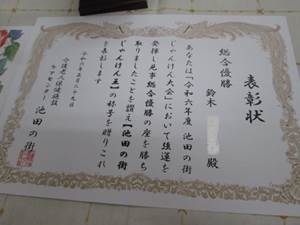 表彰状
総合優勝
鈴木
殿
あなたは「令和六年度 池田の街
じゃんけん大会」において強運を
発揮し見事総合優勝の座を勝ち
取りましたことを讃え【池田の街
じゃんけん王】の称号を贈りこれ
を表彰します
令和六年五月二十九日
介護老人保健施設
ケアセンター 池田の街